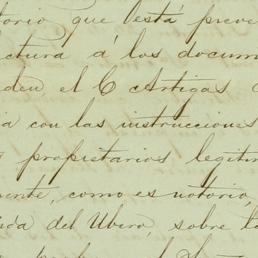 torio que está preve
ctura á los docum
den el C Artigas
ia con las instrucciones
propietarios legiti
mente, como es notorio,
del Ubero, sobre la